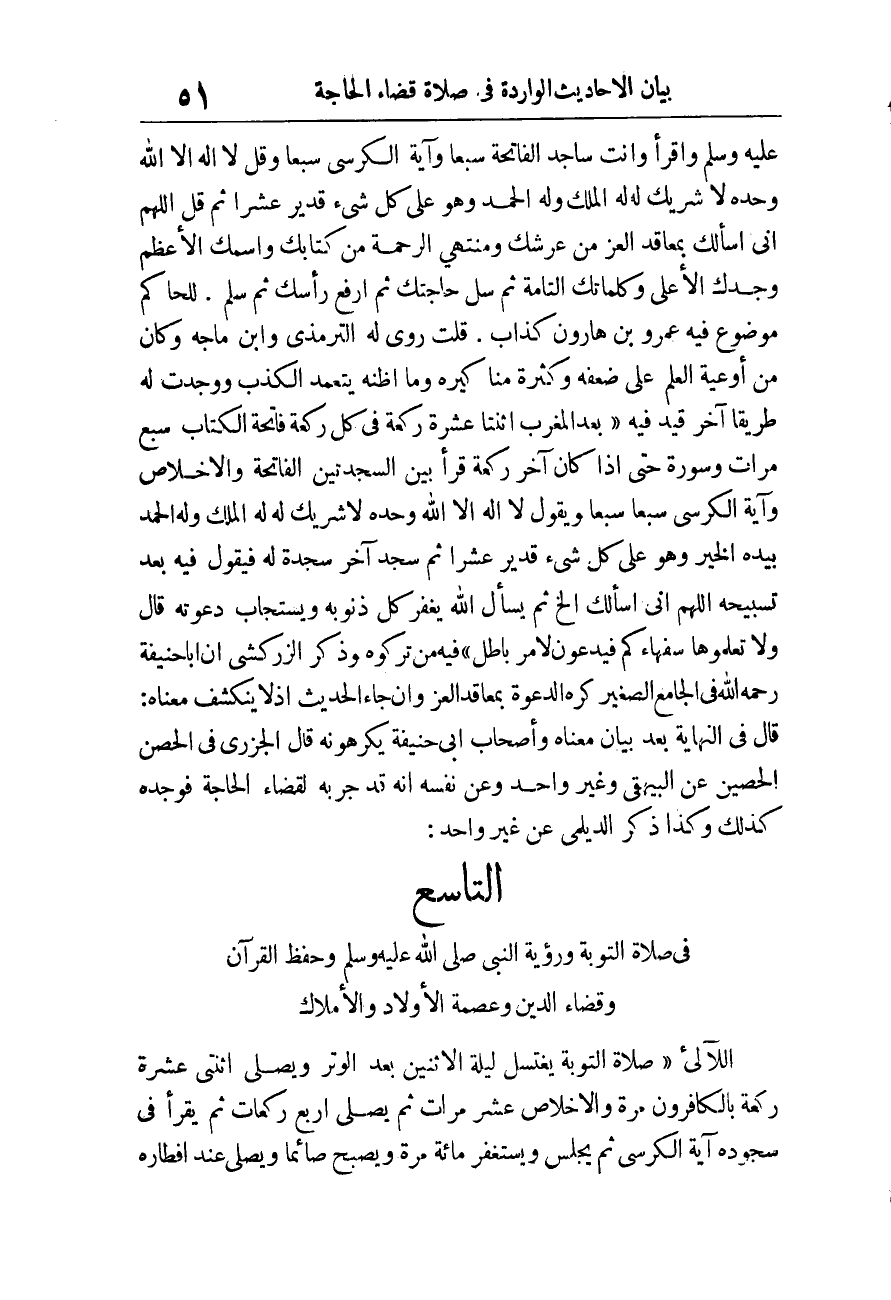 بيان الاحاديث الواردة فى. صلاة قضاء الحاجة ٥١
عليه وسلم واقرأ وانت ساجد الفاتحة سبعا وآية الكرسى سبعا وقل لا اله الا الله
وحده لا شريك له له الملك وله الحمد وهو على كل شىء قدير عشرا ثم قل اللهم
انى اسألك بمعاقد العز من عرشك ومنتهي الرحمة من كتابك واسمك الأعظم
وجدك الأعلى وكلماتك التامة ثم سل حاجتك ثم ارفع رأسك ثم سلم . للحاكم
موضوع فيه عمرو بن هارون كذاب . قلت روى له الترمذى وابن ماجه وكان
من أوعية العلم على ضعفه وكثرة مناكيره وما اظنه يتعمد الكذب ووجدت له
طريقا آخر قيد فيه « بعد المغرب اثنتا عشرة ركعة فى كل ركعة فاتحة الكتاب سبع
مرات وسورة حتى اذا كان آخر ركعة قرأ بين السجدتين الفاتحة والاخلاص
وآية الكرسى سبعا سبعا ويقول لا اله الا الله وحده لا شريك له له الملك وله الحمد
بيده الخير وهو على كل شىء قدير عشرا ثم سجد آخر سجدة له فيقول فيه بعد
تسبيحه اللهم انى اسألك الخ ثم يسأل الله يغفر كل ذنوبه ويستجاب دعوته قال
ولا تعلموها سفهاءكم فيدعون لامر باطل » فيه من تركوه وذكر الزركشى ان ابا حنيفة
رحمه الله فى الجامع الصغير كره الدعوة بمعاقد العز وان جاء الحديث اذ لا ينكشف معناه :
قال فى النهاية بعد بيان معناه وأصحاب ابى حنيفة يكرهونه قال الجزرى فى الحصن
الحصين عن البيهقى وغير واحد وعن نفسه انه قد جربه لقضاء الحاجة فوجده
كذلك وكذا ذكر الديلمى عن غير واحد :
التاسع
فى صلاة التوبة ورؤية النبى صلى الله عليه وسلم وحفظ القرآن
وقضاء الدين وعصمة الأولاد والأملاك
اللآلئ « صلاة التوبة يغتسل ليلة الاثنين بعد الوتر ويصلى اثنتى عشرة
ركعة بالكافرون مرة والاخلاص عشر مرات ثم يصلى اربع ركعات ثم يقرأ فى
سجوده آية الكرسى ثم يجلس ويستغفر مائة مرة ويصبح صائما ويصلى عند افطاره